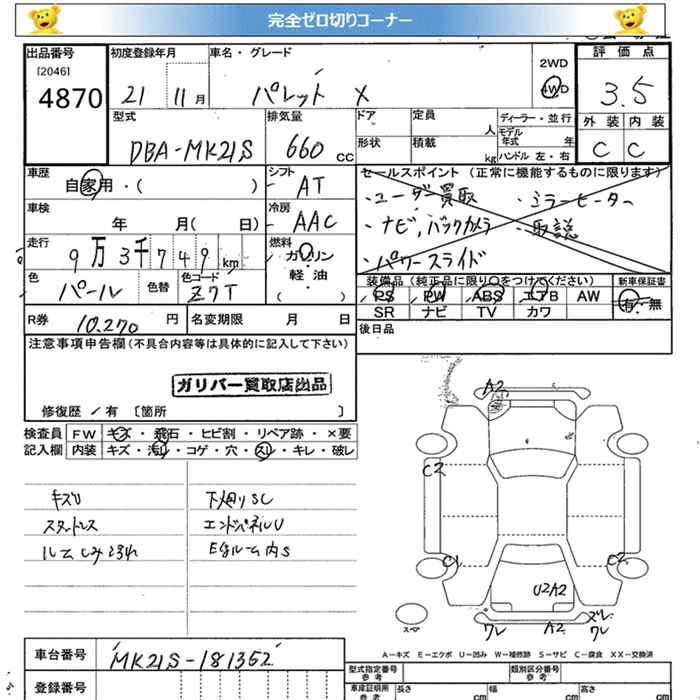 完全ゼロ切りコーナー
出品番号
[2046]
4870
初度登録年月
21 11月
車名・グレード
パレット X
2WD
4WD
評価点
3.5
外装 内装
C C
型式
DBA-MK21S
排気量
660 CC
ドア
形状
定員 人
積載 kg
ディーラー・並行
モデル年式 年
ハンドル 左・右
車歴
自家用・( )
シフト
AT
セールスポイント (正常に機能するものに限ります)
・ユーザー買取 ・ミラーヒーター
・ナビ,バックカメラ ・取説
・パワースライド
車検
年 月( 日)
冷房
AAC
走行
9万3千749km
燃料
ガソリン
軽・油
( )
色
パール
色替
色コード
Z7T
装備品(純正品に限り○をつけてください)
PS PW ABS エアB AW
SR ナビ TV カワ
新車保証書
有・無
R券 10,270 円
名変期限 月 日
後日品
注意事項申告欄(不具合内容等は具体的に記入して下さい)
ガリバー買取店出品
修復歴 / 有 [箇所 ]
検査員
記入欄
FW キズ・飛石・ヒビ割・リペア跡・×要
内装 キズ・汚れ・コゲ・穴・スリ・キレ・破レ
キズU
スタットレス
下廻りSC
エンドパネルU
A2
C2
C1
C2
U2A2
スペア
ワレ
A2
ズレ
ワレ
A－キズ E－エクボ U－凹み W－補修跡 S－サビ C－腐食 XX－交換済
車台番号
MK21S-181352
登録番号
型式指定番号
参考
類別区分番号
参考
車庫証明用
参考
長さ cm
幅 cm
高さ cm